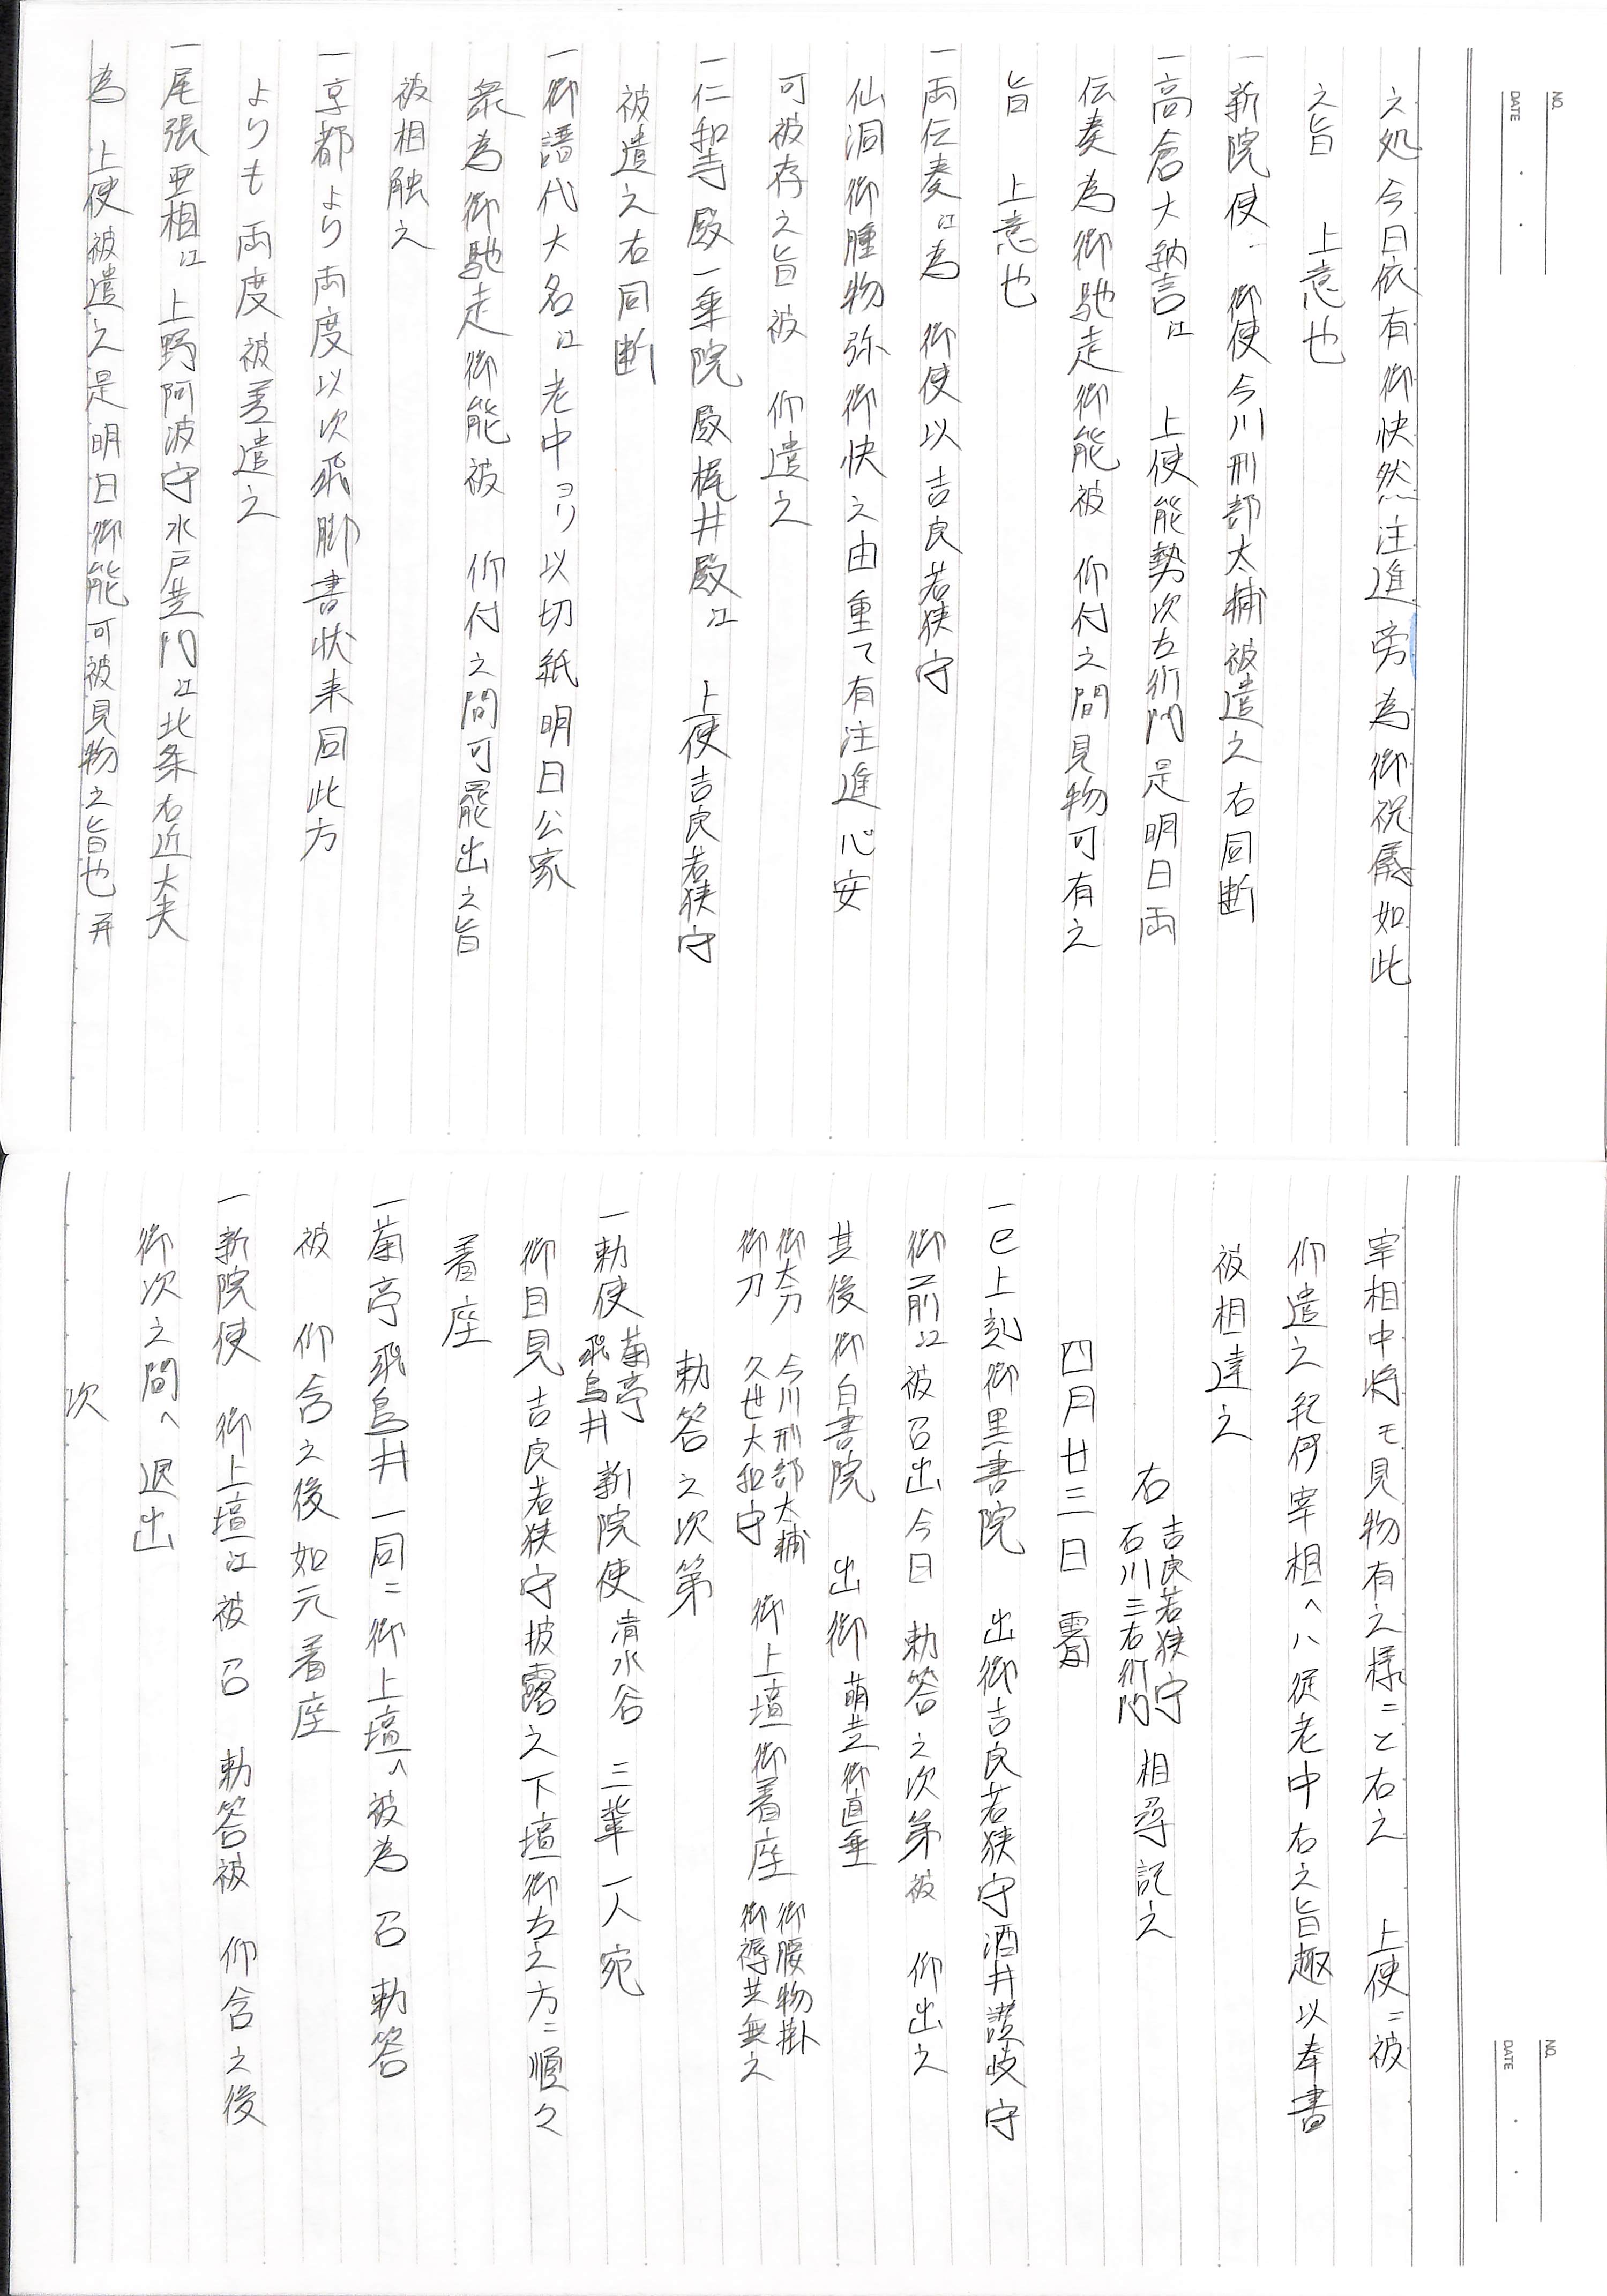 NO.
DATE
之処今日依有御快然注進旁為御祝儀如此
之旨　上意也
一新院使江　御使今川刑部太輔被遣之右同断
一高倉大納言江　上使能勢次左衛門是明日両
伝奏為御馳走御能被　仰付之間見物可有之
旨　上意也
一両伝奏江為　御使以吉良若狭守
仙洞御腫物弥御快之由重て有注進心安
可被存之旨被　仰遣之
一仁和寺殿一乗院殿梶井殿江　上使吉良若狭守
被遣之右同断
一御譜代大名江老中ヨリ以切紙明日公家
衆為御馳走御能被　仰付之間可罷出之旨
被相触之
一京都より両度以次飛脚書状来同此方
よりも両度被差遣之
一尾張亜相江上野阿波守水戸黄門江北条右近大夫
為　上使被遣之是明日御能可被見物之旨也并
NO.
DATE
宰相中将モ見物有之様ニと右之　上使ニ被
仰遣之紀伊宰相ヘハ従老中右之旨趣以奉書
被相達之
右　吉良若狭守　石川三右衛門　相尋記之
四月廿三日　霽
一巳上刻御黒書院　出御吉良若狭守酒井讃岐守
御前江被召出今日　勅答之次第被　仰出之
其後御白書院　出御　萌黄御直垂
御太刀　今川刑部太輔
御刀　久世大和守　御上壇御着座　御腰物掛　御褥共無之
勅答之次第
一勅使　菊亭　飛鳥井　新院使　清水谷　三輩一人宛
御目見吉良若狭守披露之下壇御左之方ニ順々
着座
一菊亭飛鳥井一同ニ御上壇ヘ被為　召　勅答
被　仰含之後如元着座
一新院使　御上壇江被　召　勅答被　仰含之後
御次之間ヘ退出
次